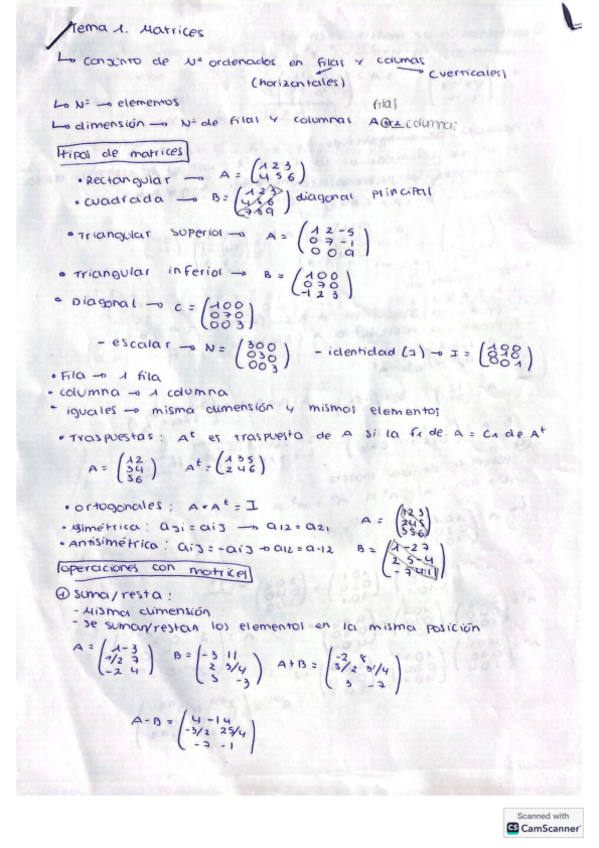 Tema 1. Matrices
↳ Conjunto de Nº ordenados en filas y columas
(horizontales) (verticales)
↳ Nº → elementos filas
↳ dimensión → Nº de filas y columnas
tipos de matrices
• Rectangular → A = (1 2 3
4 5 6)
• cuadrada → B = (1 2 3
4 5 6
7 8 9) diagonal principal
• Triangular superior → A = (1 2 -5
0 7 -1
0 0 9)
• Triangular inferior → B = (1 0 0
0 7 0
-1 2 3)
• Diagonal → C = (1 0 0
0 7 0
0 0 3)
- escalar → N = (3 0 0
0 3 0
0 0 3) - identidad (I) → I = (1 0 0
0 1 0
0 0 1)
• Fila → 1 fila
• columna → 1 columna
• iguales → misma dimensión y mismos elementos
• Traspuestas: Aᵗ es traspuesta de A si la f1 de A = C1 de Aᵗ
A = (1 2
3 4
5 6) Aᵗ = (1 3 5
2 4 6)
• ortogonales: A · Aᵗ = I
• simétrica: aji = aij → a12 = a21 A = (1 2 3
2 4 5
3 5 6)
• Antisimétrica: aij = -aij → a12 = a-12 B = (1 -2 7
2 5 -4
-7 4 1)
operaciones con matrices
① suma/resta:
- Misma dimensión
- se suman/restan los elementos en la misma posición
A = (1 -3
1/2 7
-2 4) B = (-3 11
2 3/4
5 -3) A+B =
A-B = (4 -14
-3/2 25/4
-7 -1)
Scanned with
CS CamScanner